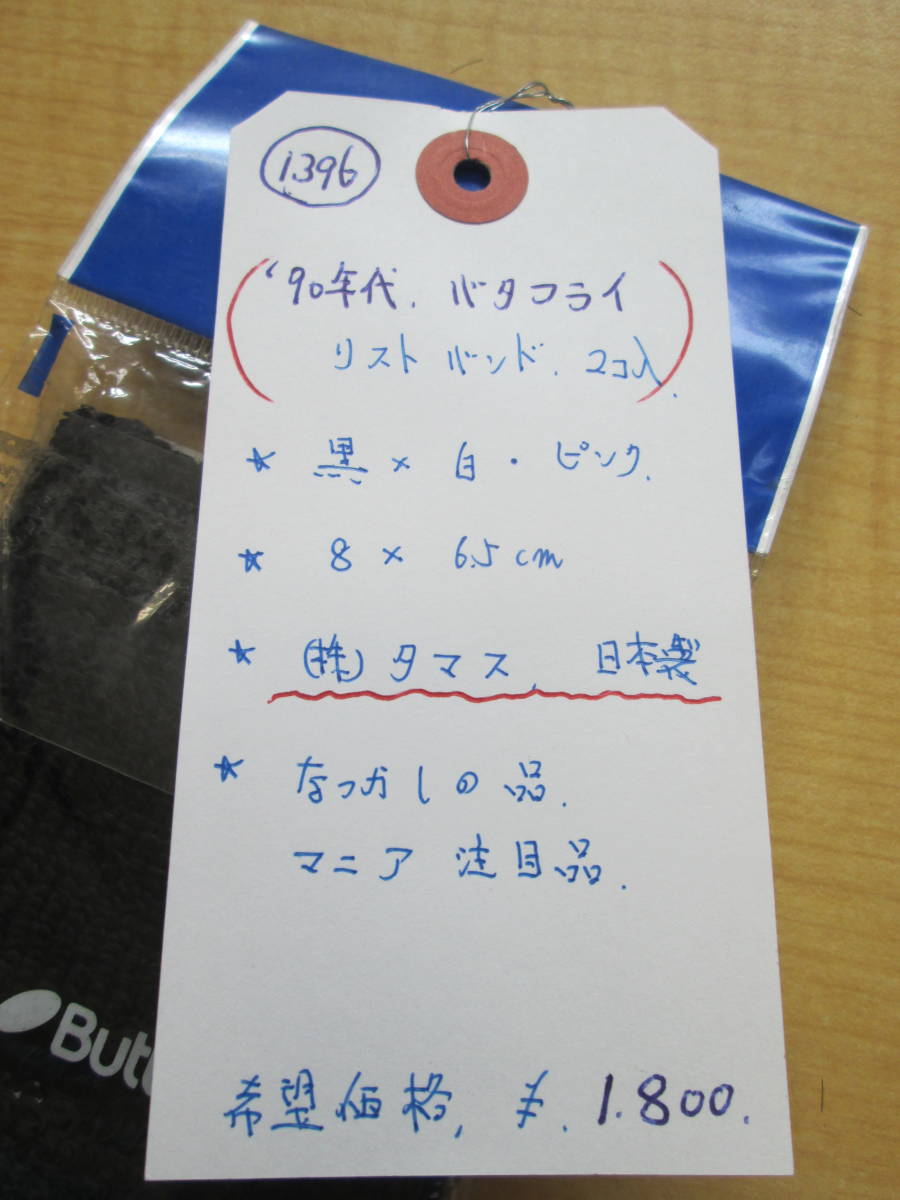 1396
'90年代. バタフライ
リストバンド. 2コ入.
★ 黒 × 白・ピンク.
★ 8 × 6.5cm
★ (株)タマス, 日本製
★ なつかしの品.
マニア 注目品.
Butt
希望価格, ¥. 1.800.